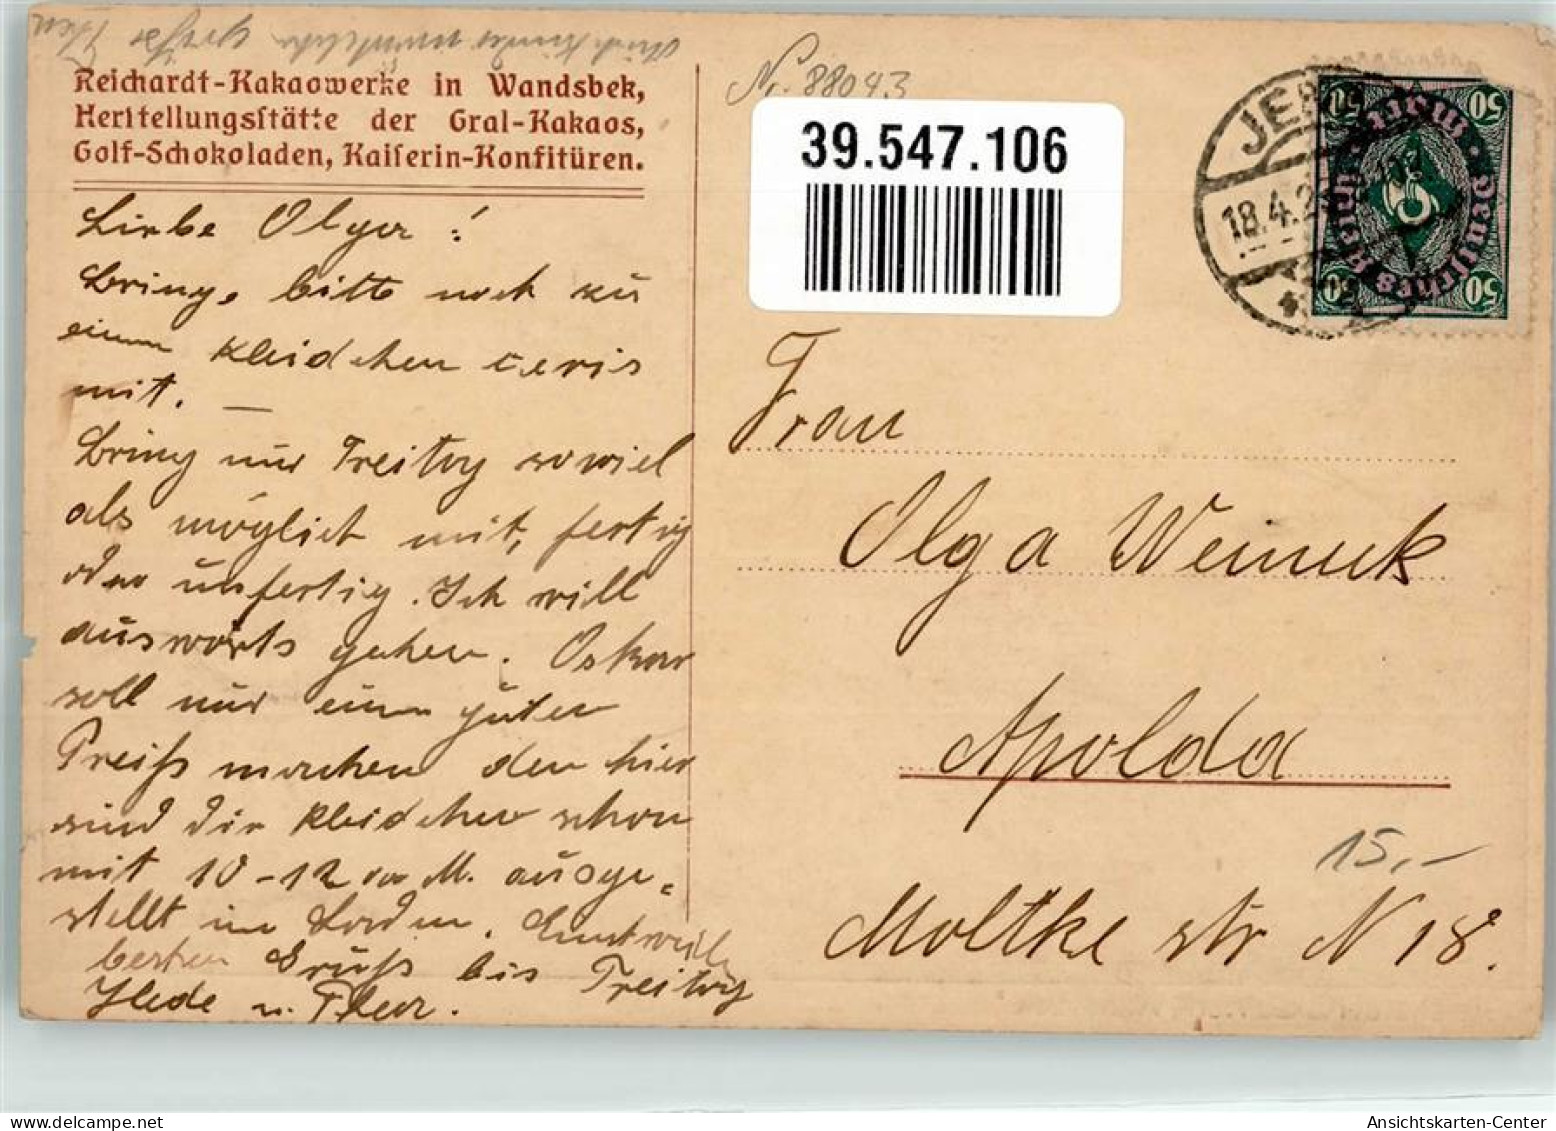 Reichardt-Kakaowerke in Wandsbek,
Herstellungsstätte der Gral-Kakaos,
Golf-Schokoladen, Kaiserin-Konfitüren.
Nr. 88043
39.547.106
JENA
18.4.2
50 50
Deutsches Reich
50 50
Liebe Olga!
Bringe bitte noch zu
einem Kleidchen
mit. —
Bring nur Freitag soviel
als möglich mit, fertig
oder unfertig. Ich will
auswärts gehen. Oskar
soll nur einen guten
Preiß machen den hier
sind die Kleidchen schon
mit 10-12 M. ausge=
stellt im Laden. Einstweilen
besten Gruß bis Freitag
u.
Frau
Olga
Apolda
Moltke str N 18.
15,-
www.delcampe.net
Ansichtskarten-Center